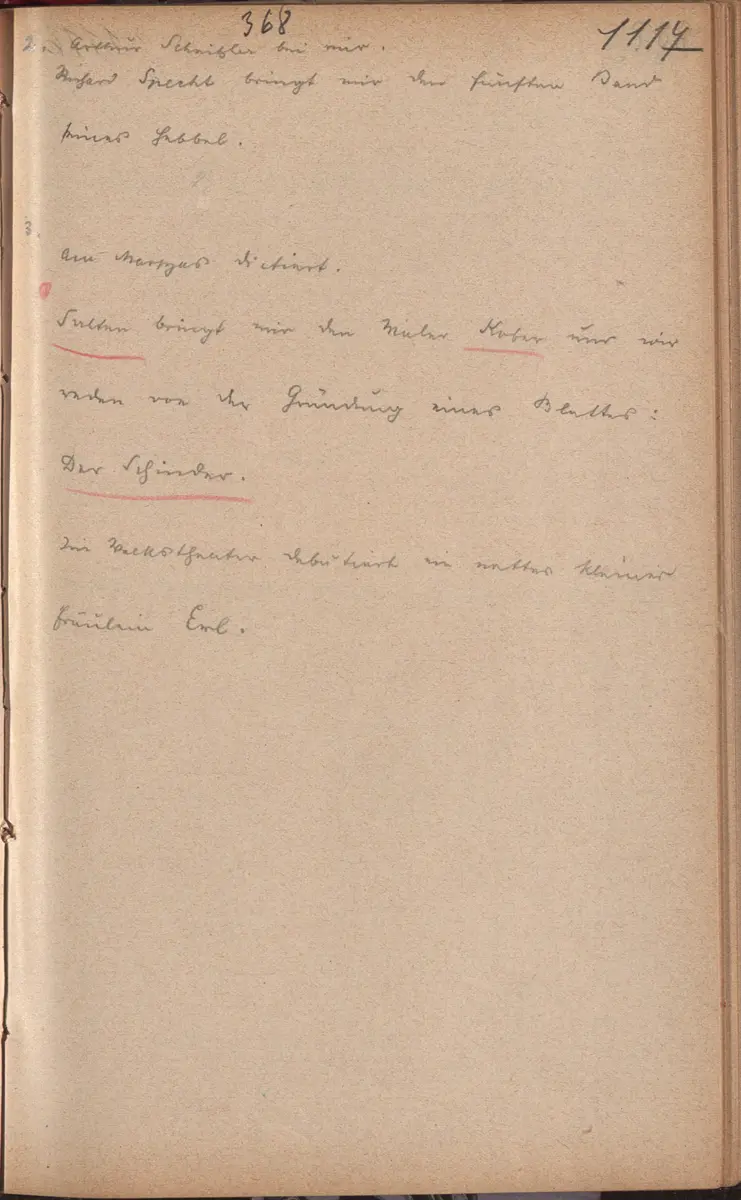 368
1117
2. Arthur Schnitzler bei mir.
Richard Specht bringt mir den fünften Band
seines Hebbel.
3.
Am Marsyas dictiert.
Salten bringt mir den Maler Kober und wir
reden von der Gründung eines Blattes:
Der Schinder.
Im Volkstheater debutiert ein nettes kleines
Fräulein Erl.